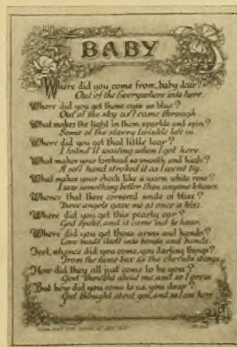 BABY
Where did you come from, baby dear?
Out of the everywhere into here.
Where did you get those eyes so blue?
Out of the sky as I came through.
What makes the light in them sparkle and spin?
Some of the starry twinkles left in.
Where did you get that little tear?
I found it waiting when I got here.
What makes your forehead so smooth and high?
A soft hand stroked it as I went by.
What makes your cheek like a warm white rose?
I saw something better than anyone knows.
Whence that three cornered smile of bliss?
Three angels gave me at once a kiss.
Where did you get this pearly ear?
God spoke, and it came out to hear.
Where did you get those arms and hands?
Love made itself into bonds and bands.
Feet, whence did you come, you darling things?
From the same box as the cherubs' wings.
How did they all just come to be you?
God thought about me, and so I grew.
But how did you come to us, you dear?
God thought about you, and so I am here.